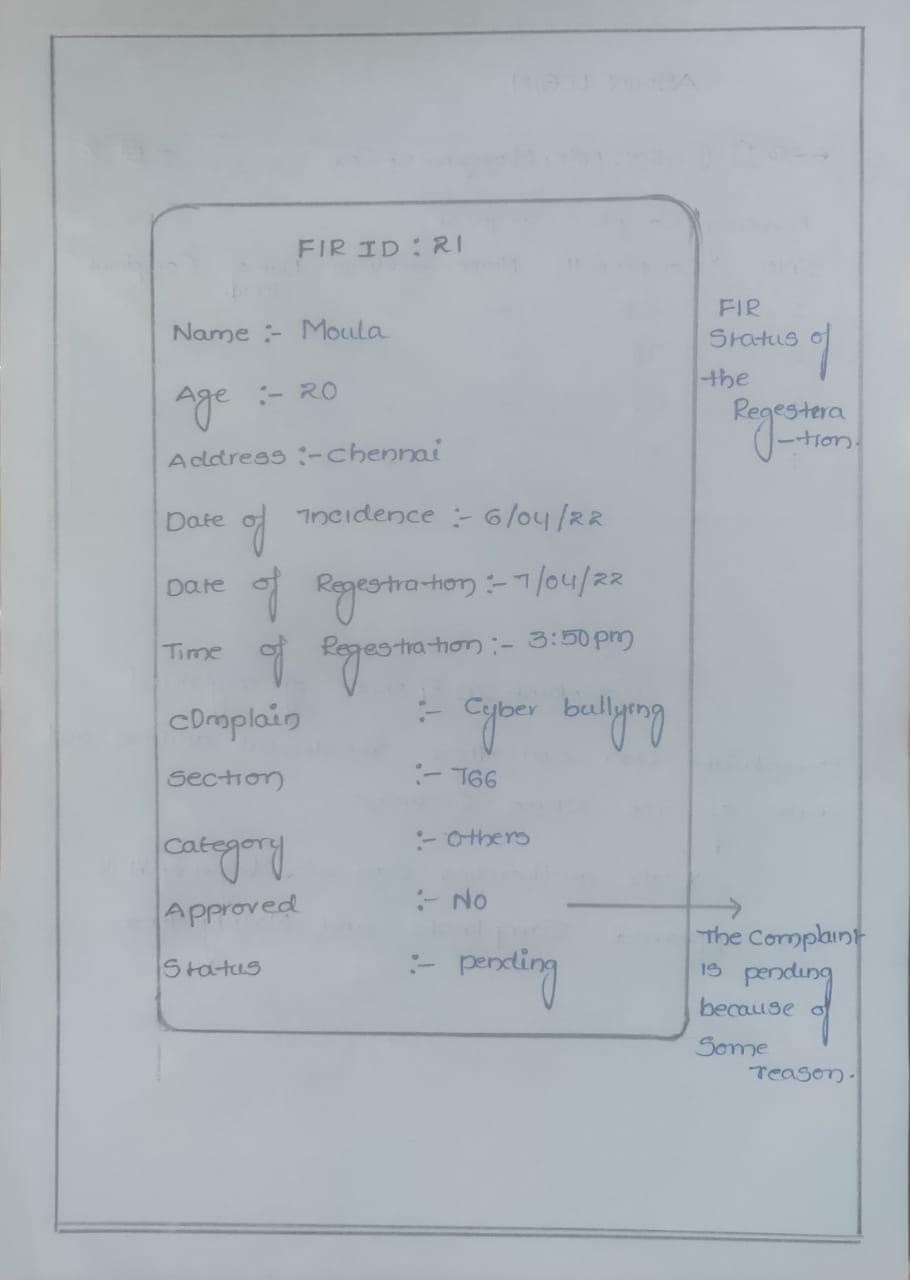 FIR ID : R1
Name :- Moula
Age :- 20
Address :- chennai
Date of Incidence :- 6/04/22
Date of Regestration :- 7/04/22
Time of Regestration :- 3:50pm
Complain :- Cyber bullying
Section :- T66
Category :- Others
Approved :- No
Status :- pending
FIR
Status of
the
Regestera
-tion.
The Complaint
is pending
because of
Some
reason.